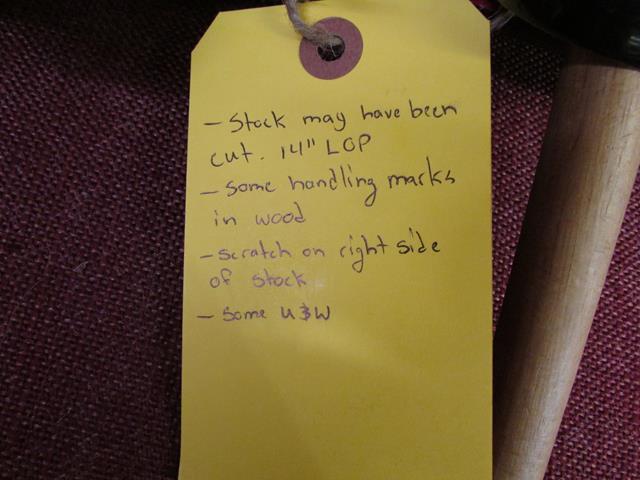 - Stock may have been
cut. 14" LOP
- Some handling marks
in wood
- scratch on right side
of stock
- Some U&W